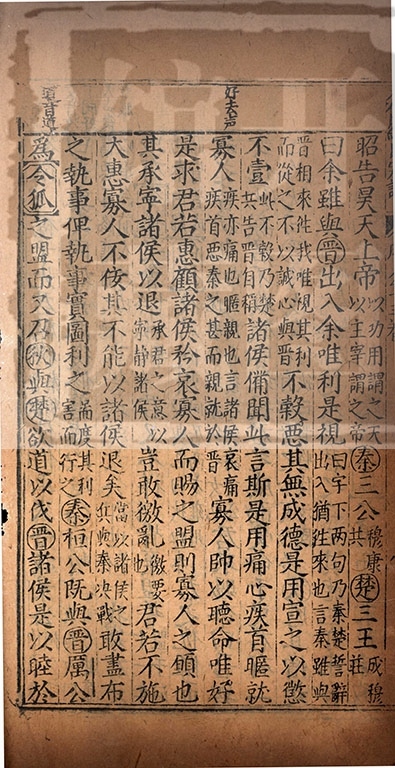 好去声
昭告昊天上帝以功用謂之天以主宰謂之帝秦三公穆康共楚三王成穆莊
曰余雖與晉出入余唯利是視曰字下兩句乃秦楚誓辭出入猶往來也言秦雖與
晉相來往我唯視其利而從之不以誠心與晉不穀惡其無成德是用宣之以懲
不壹此不穀乃楚共告晉自稱諸侯備聞此言斯是用痛心疾首暱就
寡人疾亦痛也暱親也言諸侯哀痛疾首惡秦之甚而親就於晉寡人帥以聽命唯好
是求君若惠顧諸侯矜哀寡人而賜之盟則寡人之願也
其承寧諸侯以退承君之意以寧靜諸侯豈敢徼亂徼要也君若不施
大惠寡人不佞其不能以諸侯退矣當以諸侯之兵與秦決戰敢盡布
之執事俾執事實圖利之啚度其利害而行之秦桓公既與晉厲公
為令狐之盟而又召狄與楚欲道以伐晉諸侯是以睦於